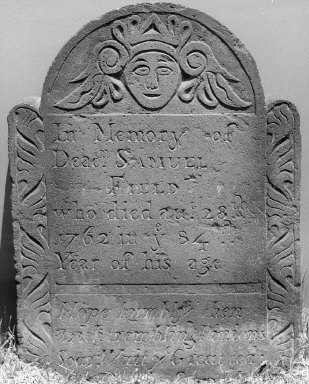 In Memory of
Deac SAMUEL
FIELD
who died aug 28th
1762 in ye 84th
Year of his age
Hope humbly then
with trembling Pinions
Soar Wait ye Great